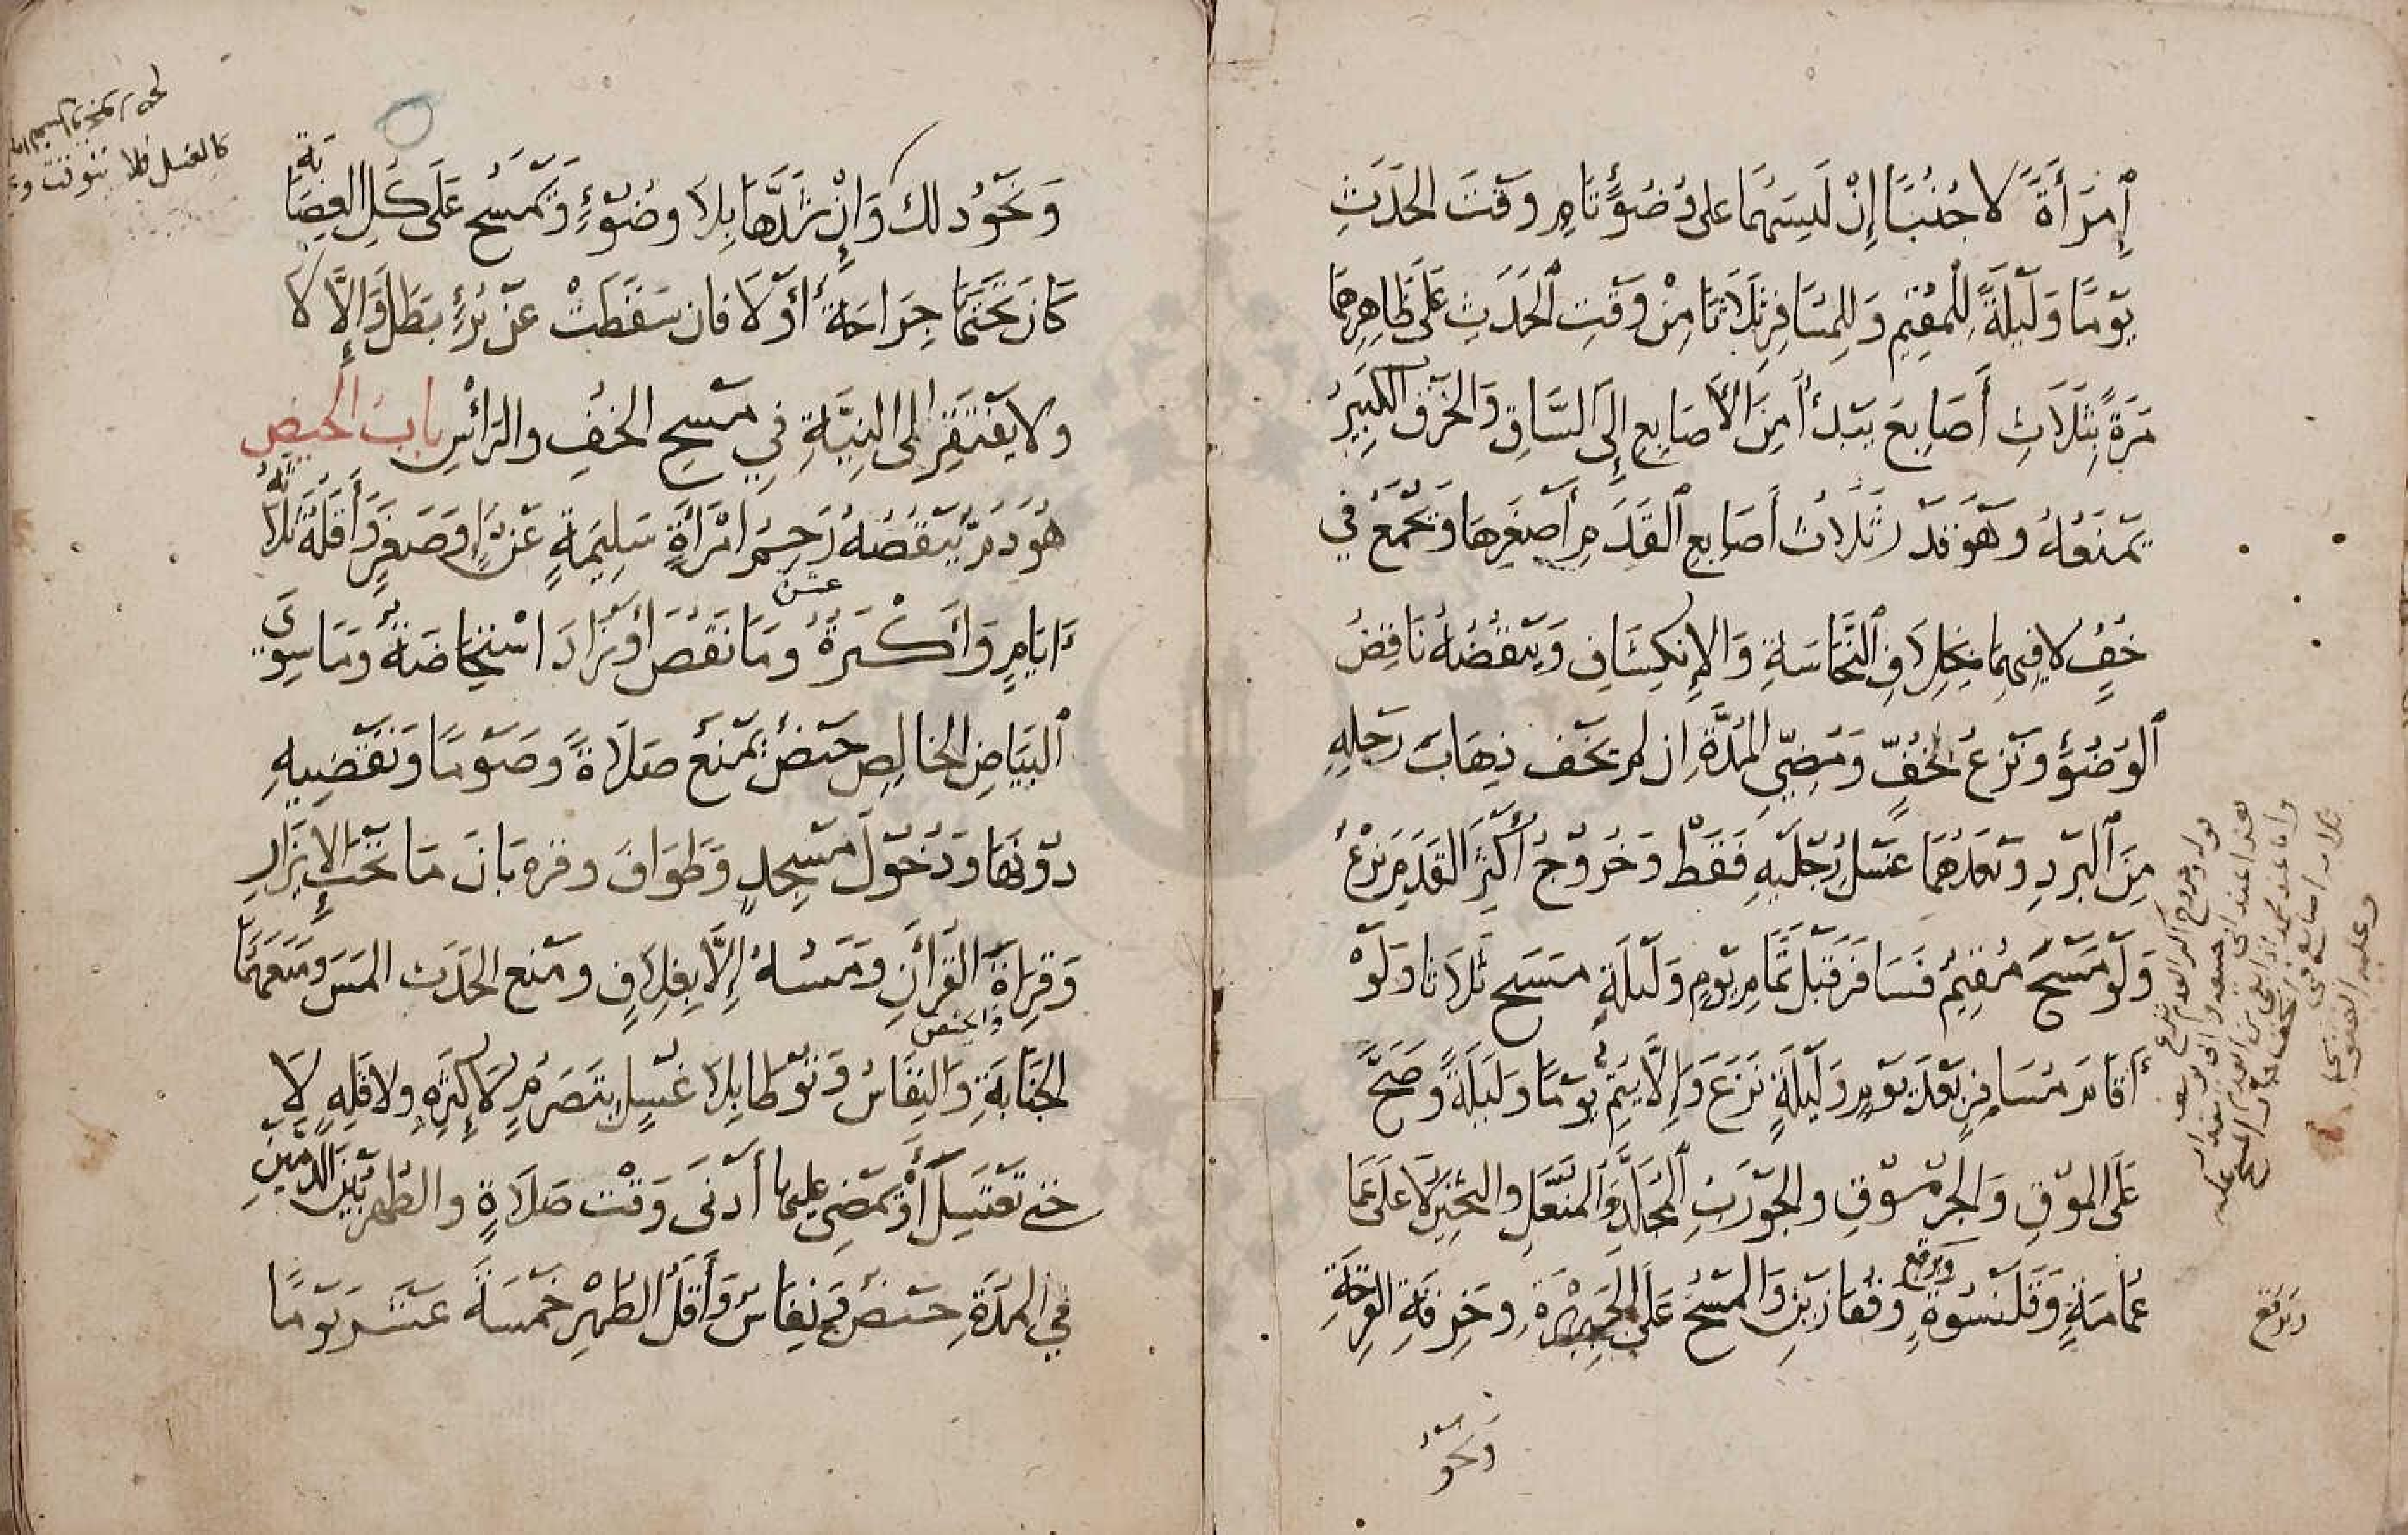 اِمْرَأَةً لا جُنُبًا إِنْ لَبِسَهُمَا على وُضُوءٍ تَامٍ وَقتَ الحَدَثِ
يَوْمًا وَلَيْلَةً لِلْمُقِيمِ وَلِلْمُسَافِرِ ثَلَاثًا مِنْ وَقتِ الْحَدَثِ عَلَى ظَاهِرِهِمَا
مَرَّةً بِثَلَاثِ أَصَابِعَ يَبْدَأُ مِنَ الأَصَابِعِ إِلَى السَّاقِ وَالخَرْقُ الكَبِيرُ
يَمْنَعُهُ وهُوَ قَدْرُ ثَلاثِ أَصَابِعِ القَدَمِ أَصْغَرِهَا وَيُجْمَعُ في
خُفٍّ لا فِيهِمَا بِخِلَافِ النَّجَاسَةِ وَالإِنْكِشَافِ وَيَنْقُضُهُ نَاقِضُ
الوُضُوءِ ونَزْعُ خُفٍّ وَمُضِيُّ المُدَّةِ ان لم يَخَفْ ذِهَابَ رِجْلِهِ
مِنَ البَرْدِ وبَعْدَهُمَا غَسَلَ رِجْلَيْهِ فَقَطْ وَخُرُوجُ أَكْثَرِ القَدَمِ نَزْعٌ
وَلَوْ مَسَحَ مُقِيمٌ فَسَافَرَ قَبْلَ تَمَامِ يَوْمٍ وَلَيْلَةٍ مَسَحَ ثَلَاثًا وَلَوْ
أَقَامَ مُسَافِرٌ بَعْدَ يَوْمٍ وَلَيْلَةٍ نَزَعَ وَإِلَّا يُتِمُّ يَوْمًا وَلَيْلَةً وَصَحَّ
عَلَى المُوْقِ وَالجُرْمُوْقِ والجَوْرَبِ المُجَلَّدِ وَالمُنَعَّلِ والثَّخِينِ لَا عَلَى عِمَامَةٍ
وَقَلَنْسُوَةٍ وَبُرْقُعٍ وَقُفَّازَيْنِ وَالمَسْحُ عَلَى الجَبِيرَةِ وخِرْقَةِ القَرْحَةِ
وبرقع
وَنَحْوُ
وَنَحْوُ ذلك وَإِنْ شَدَّهَا بِلَا وضُوْءٍ وَيَمْسَحُ عَلَى كُلِّ العِصَابَةِ
كَانَ تَحْتَهَا جِرَاحَةٌ أَوْ لَا فان سَقَطَتْ عَنْ بُرْءٍ بَطَلَ وَإِلَّا لا
ولا يَفْتَقِرُ إلى النِيَّةِ فِي مَسْحِ الخُفِ والرَأْسِ بابُ الحيض
هُوَ دَمٌ يَنْفُضُهُ رَحِمُ امْرَأَةٍ سَلِيمَةٍ عَنْ دَاءٍ وَصِغَرٍ وَأَقَلُّهُ ثَلَاثَةُ
أَيَّامٍ وَأَكْثَرُهُ عَشَرَةٌ ومَا نَقَصَ أوْ زَادَ اسْتِحَاضَةٌ وَمَا سِوَى
البَيَاضِ الخَالِصِ حَيْضٌ يَمْنَعُ صَلَاةً وَصَوْمًا وَتَقْضِيهِ
دُوْنَهَا وَدُخُوْلَ مَسْجِدٍ وَطَوَافَ وقِرْبَانَ مَا تَحْتَ الإِزَارِ
وَقِرَاءَةَ القُرْآنِ وَمَسَّهُ إِلَّا بِغِلَافٍ ومَنَعَ الحَدَثُ المَسَّ وَمَنَعَهُمَا
الجَنَابَةُ وَالنِفَاسُ وَتُوْطَأُ بِلَا غُسْلٍ بِتَصَرُّمٍ لِأَكْثَرِهِ ولاقَلِّهِ لَا
حتى تَغْتَسِلَ أَوْ يَمْضِيَ عليها أَدْنَى وَقْتِ صَلَاةٍ والطُّهْرُ بَيْنَ الدَّمَيْنِ
في المُدَّةِ حَيْضٌ وَنِفَاسٌ وَأَقَلُّ الطُهْرِ خَمْسَةَ عَشَرَ يَوْمًا